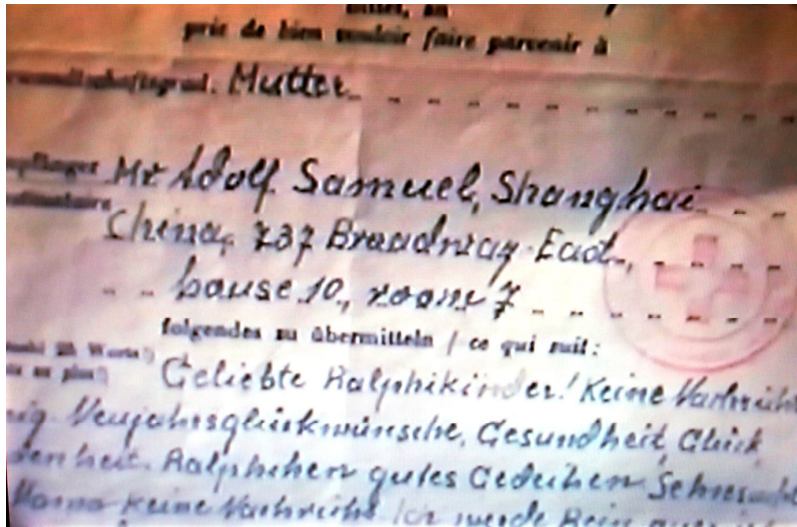 prie de bien vouloir faire parvenir à
Mutter
Mr Adolf Samuel, Shanghai
China, 737 Broadway East,
house 10, room 7
folgendes zu übermitteln / ce qui suit:
Geliebte Ralphikinder! Keine Nachricht
Neujahrsglückwünsche, Gesundheit, Glück
Ralphchen gutes Gedeihen Sehnsucht
Mama keine Nachricht. Ich werde